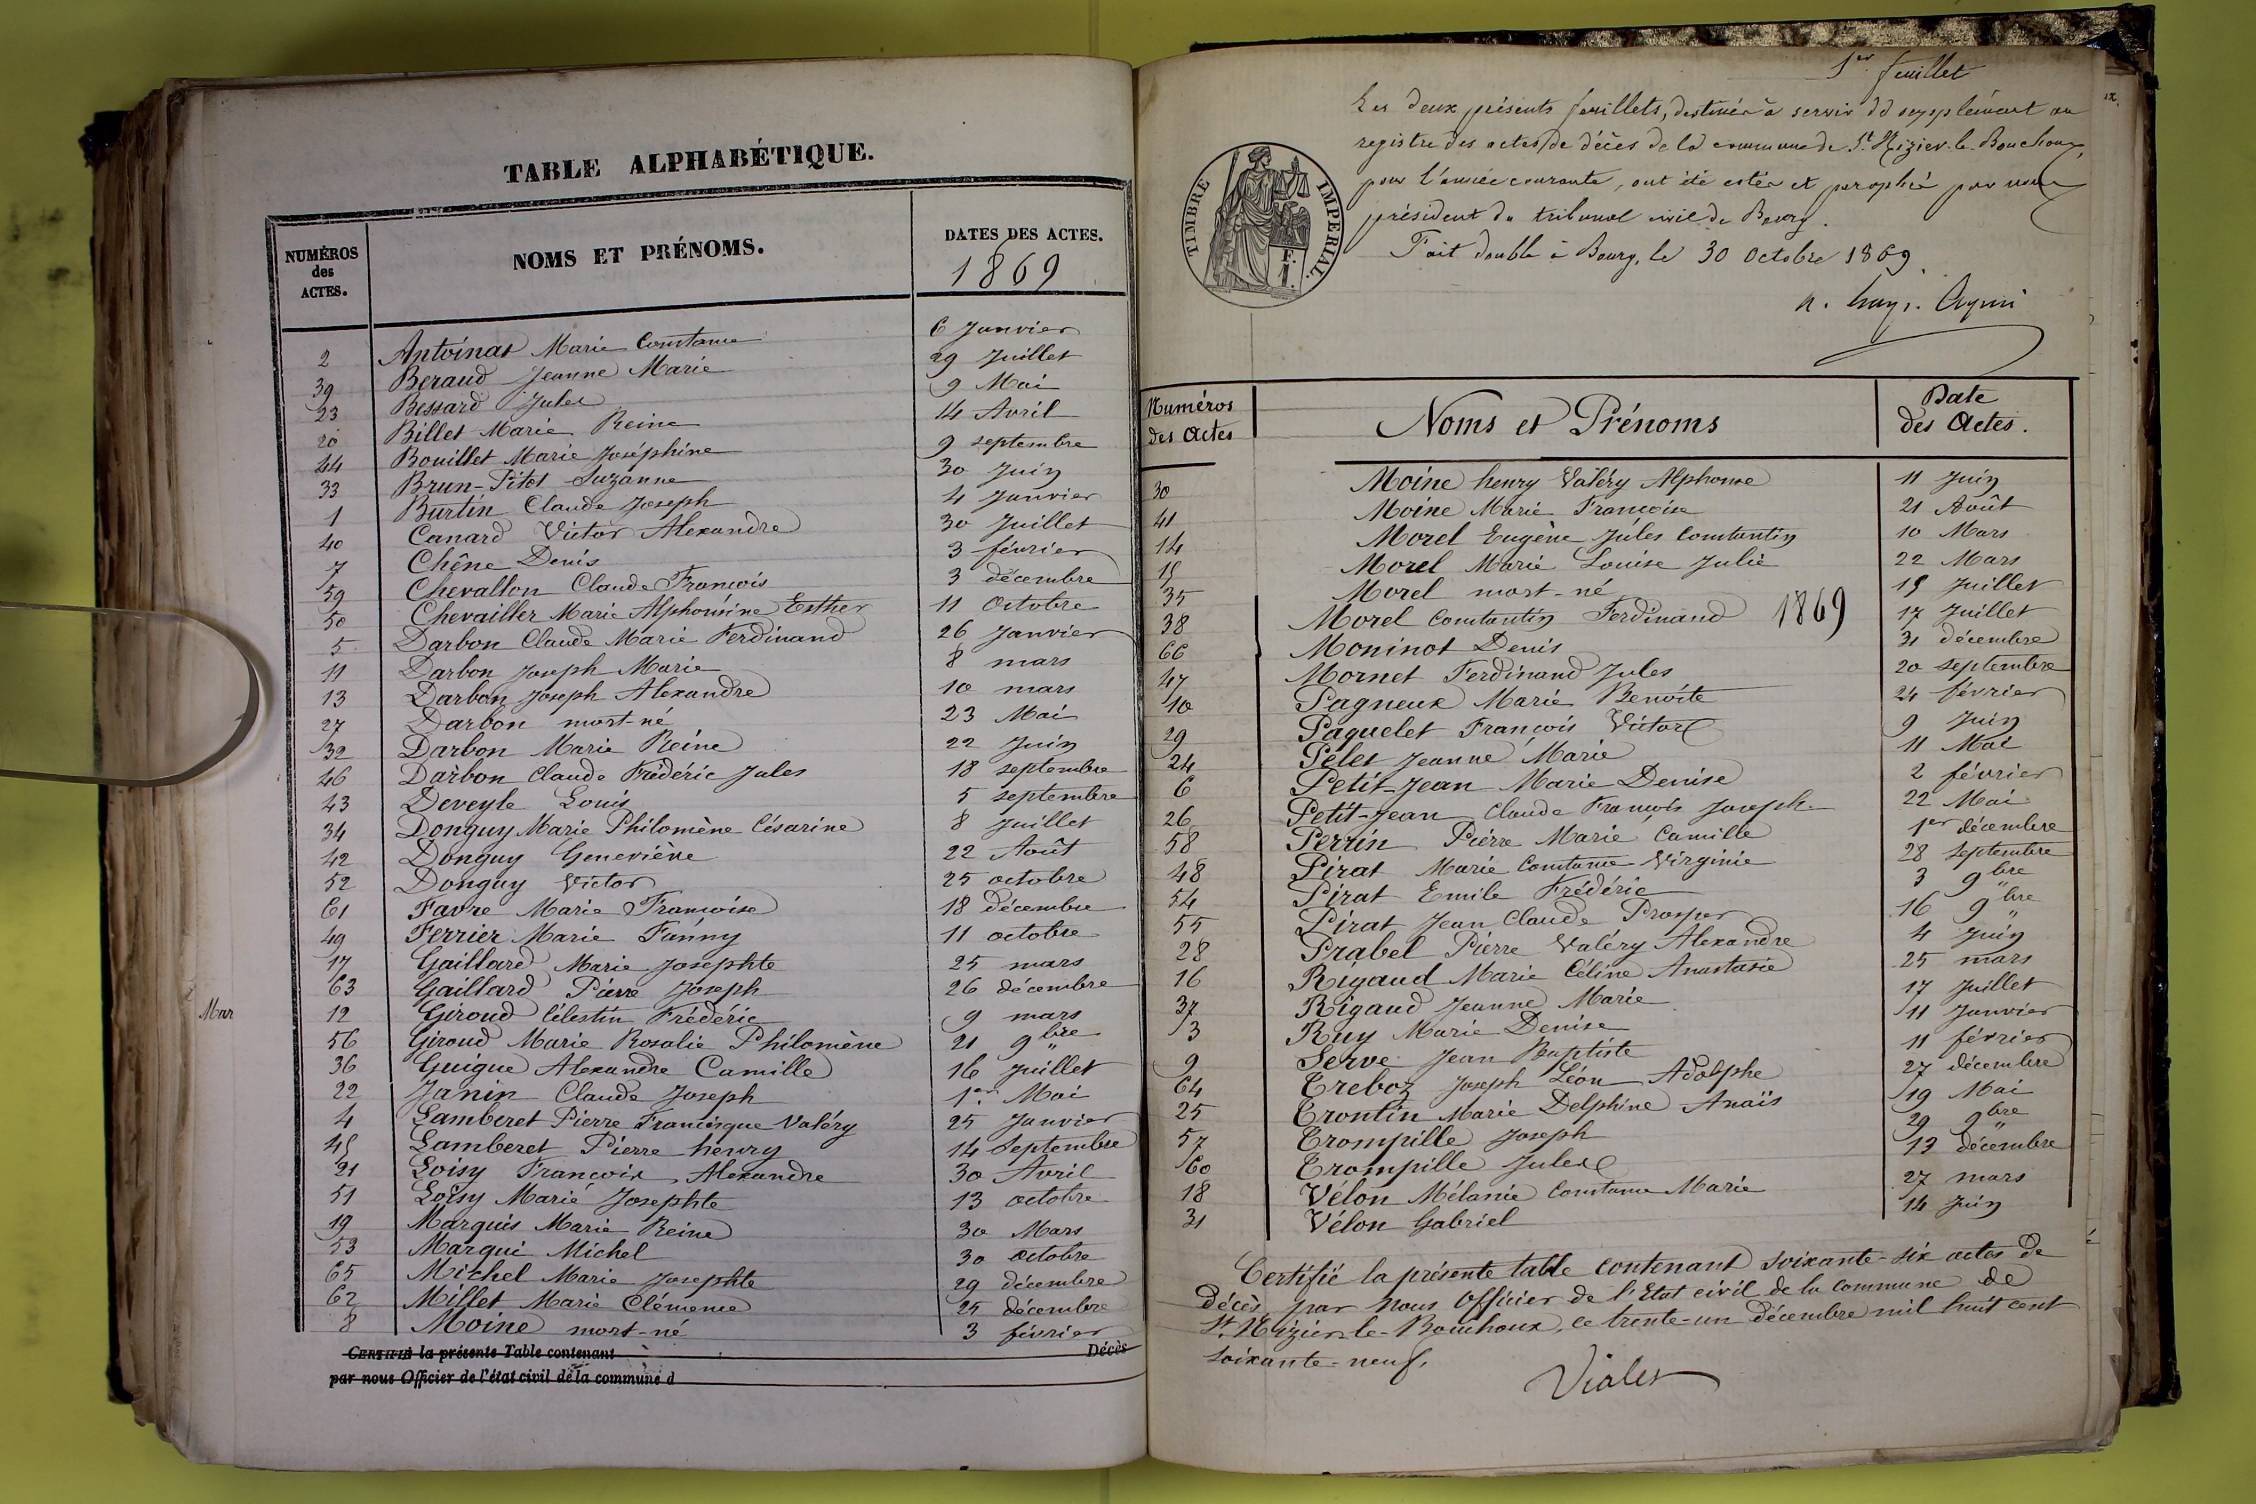 TABLE ALPHABÉTIQUE.
NUMÉROS des ACTES. NOMS ET PRÉNOMS. DATES DES ACTES.
1869
2 Antoinat Marie Constance 6 Janvier
39 Beraud Jeanne Marie 29 Juillet
23 Bessard Jules 9 Mai
20 Billet Marie Reine 14 Avril
44 Bouillet Marie Joséphine 9 septembre
33 Brun-Pitet Suzanne 30 Juin
1 Burtin Claude Joseph 4 Janvier
40 Canard Victor Alexandre 30 Juillet
7 Chêne Denis 3 février
59 Chevallon Claude François 3 décembre
50 Chevailler Marie Alphonsine Esther 11 Octobre
5 Darbon Claude Marie Ferdinand 26 Janvier
11 Darbon Joseph Marie 8 mars
13 Darbon Joseph Alexandre 10 mars
27 Darbon mort-né 23 Mai
32 Darbon Marie Reine 22 Juin
46 Darbon Claude Frédéric Jules 18 septembre
43 Deveyle Louis 5 septembre
34 Donguy Marie Philomène Césarine 8 Juillet
42 Donguy Geneviève 22 Août
52 Donguy Victor 25 octobre
61 Favre Marie Françoise 18 décembre
49 Ferrier Marie Fanny 11 octobre
17 Gaillard Marie Josephte 25 mars
63 Gaillard Pierre Joseph 26 décembre
12 Giroud Célestin Frédéric 9 mars
56 Giroud Marie Rosalie Philomène 21 9bre
36 Guigue Alexandre Camille 16 Juillet
22 Janin Claude Joseph 1er Mai
4 Lamberet Pierre Francisque Valéry 25 Janvier
45 Lamberet Pierre henry 14 Septembre
21 Loisy François Alexandre 30 Avril
51 Loisy Marie Josephte 13 octobre
19 Marquis Marie Reine 30 Mars
53 Marqui Michel 30 octobre
65 Michel Marie Josephte 29 décembre
62 Millet Marie Clémence 25 décembre
8 Moine mort-né 3 février
CERTIFIÉ la présente Table contenant Décès
par nous Officier de l'état civil de la commune d
Mar
1er feuillet
Les deux présents feuillets, destinés à servir de supplément au
registre des actes de décès de la commune de St Nizier-le-Bouchoux,
pour l'année courante, ont été cotés et paraphés par nous
président du tribunal civil de Bourg.
Fait double à Bourg, le 30 Octobre 1869.
TIMBRE IMPERIAL.
F.
1.
Numéros des Actes Noms et Prénoms Date des Actes.
30 Moine henry Valéry Alphonse 11 Juin
41 Moine Marie Françoise 21 Août
14 Morel Eugène Jules Constantin 10 Mars
15 Morel Marie Louise Julie 22 Mars
35 Morel mort-né 15 Juillet
38 Morel Constantin Ferdinand 1869 17 Juillet
66 Moninot Denis 31 décembre
47 Mornet Ferdinand Jules 20 septembre
10 Pagneux Marie Benoite 24 février
29 Paquelet François Victor 9 Juin
24 Pelet Jeanne Marie 11 Mai
6 Petit-Jean Marie Denise 2 février
26 Petit-Jean Claude François Joseph 22 Mai
58 Perrin Pierre Marie Camille 1er décembre
48 Pirat Marie Constance Virginie 28 septembre
54 Pirat Emile Frédéric 3 9bre
55 Pirat Jean Claude Prosper 16 9bre
28 Prabel Pierre Valéry Alexandre 4 Juin
16 Rigaud Marie Céline Anastasie 25 mars
37 Rigaud Jeanne Marie 17 Juillet
3 Ruy Marie Denise 11 Janvier
9 Serve Jean Baptiste 11 février
64 Treboz Joseph Léon Adolphe 27 décembre
25 Trontin Marie Delphine Anaïs 19 Mai
57 Trompille Joseph 29 9bre
60 Trompille Jules 13 décembre
18 Vélon Mélanie Constance Marie 27 mars
31 Vélon Gabriel 14 Juin
Certifié la présente table contenant soixante-six actes de
décès par nous Officier de l'Etat civil de la commune de
St Nizier-le-Bouchoux, ce trente-un décembre mil huit cent
soixante-neuf.
Vialet